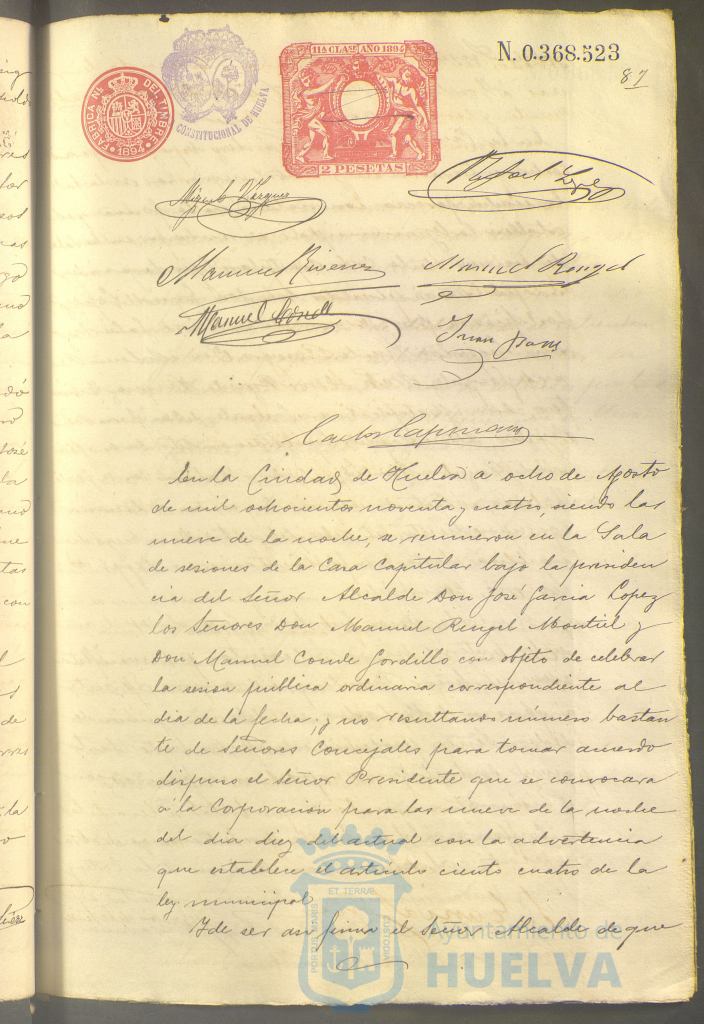 11ª CLASE AÑO 1894
N. 0.368.523
87
FABRICA NL. DEL TIMBRE
1894
CONSTITUCIONAL DE HUELVA
2 PESETAS
Rafael
Manuel Rengel
Manuel Conde
Juan
Carlos
En la Ciudad de Huelva a ocho de Agosto
de mil ochocientos noventa y cuatro, siendo las
nueve de la noche, se reunieron en la Sala
de sesiones de la Casa Capitular bajo la presiden
cia del Señor Alcalde Don José Garcia Lopez
los Señores Don Manuel Rengel Montiel y
Don Manuel Conde Gordillo con objeto de celebrar
la sesion pública ordinaria correspondiente al
dia de la fecha; y no resultando número bastan
te de Señores Concejales para tomar acuerdo
dispuso el Señor Presidente que se convocara
á la Corporacion para las nueve de la noche
del dia diez del actual con la advertencia
que establece el artículo ciento cuatro de la
ley municipal
Y de ser asi firma el Señor Alcalde de que
PORTUS MARIS
ET TERRÆ
CUSTODIA
Ayuntamiento de
HUELVA